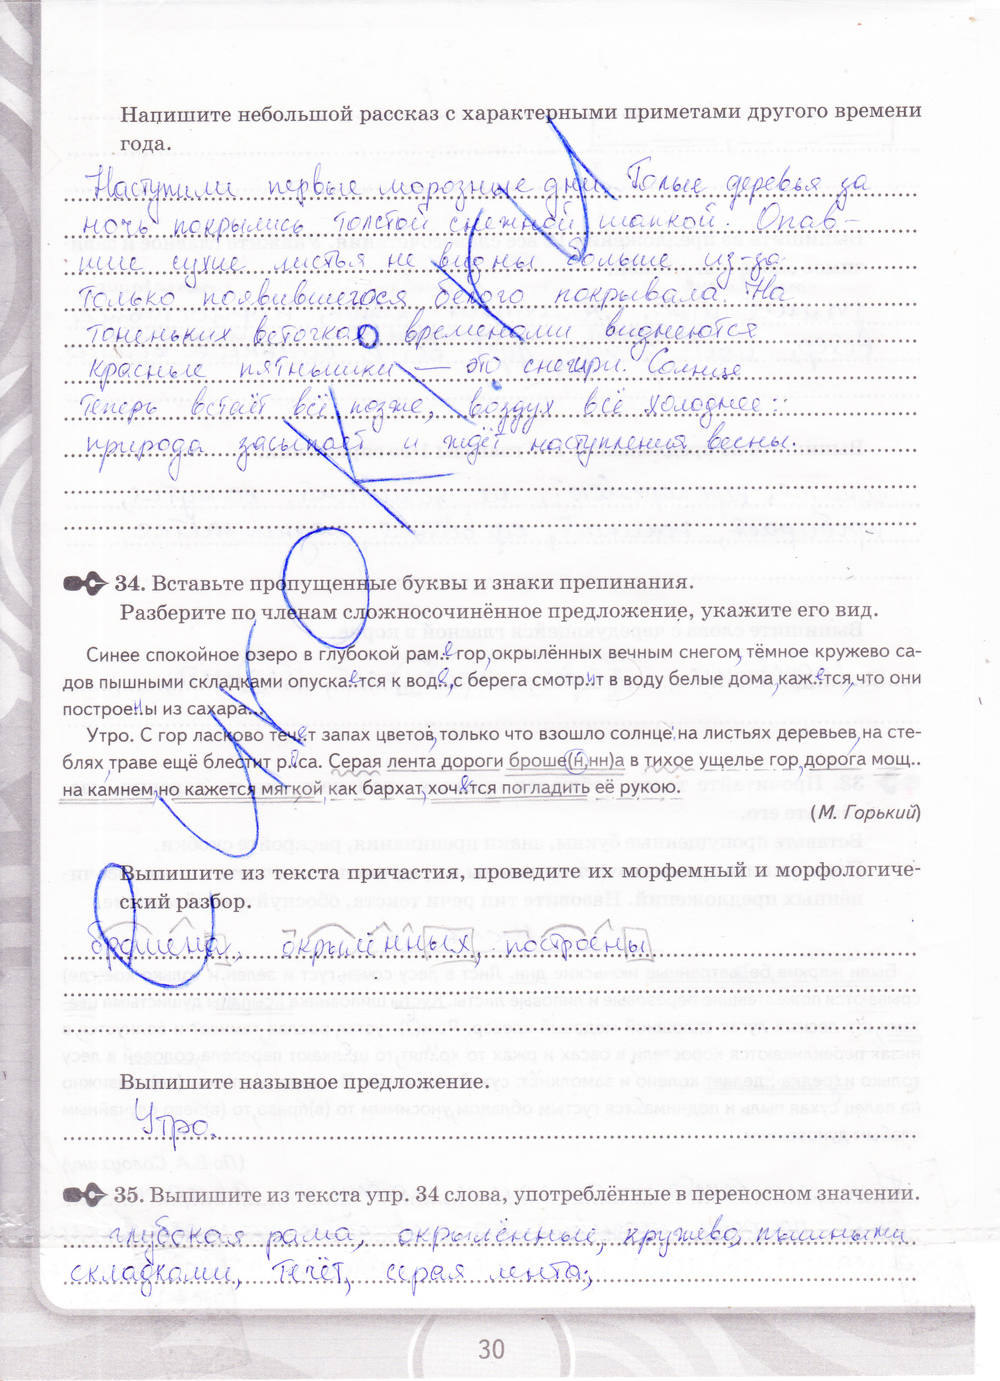 Напишите небольшой рассказ с характерными приметами другого времени
года.
Наступили первые морозные дни. Голые деревья за
ночь покрылись толстой снежной шапкой. Опав-
шие сухие листья не видны больше из-за
только появившегося белого покрывала. На
тоненьких веточках временами виднеются
красные пятнышки — это снегири. Солнце
теперь встаёт всё позже, воздух всё холоднее:
природа засыпает и ждёт наступления весны.
34. Вставьте пропущенные буквы и знаки препинания.
Разберите по членам сложносочинённое предложение, укажите его вид.
Синее спокойное озеро в глубокой рам..е гор, окрылённых вечным снегом, тёмное кружево са-
дов пышными складками опускается к воде, с берега смотрит в воду белые дома, кажется, что они
построены из сахара...
Утро. С гор ласково течёт запах цветов, только что взошло солнце, на листьях деревьев, на сте-
блях травe ещё блестит роса. Серая лента дороги броше(н,нн)а в тихое ущелье гор, дорога мощ..
на камнем, но кажется мягкой, как бархат, хочется погладить её рукою.
(М. Горький)
Выпишите из текста причастия, проведите их морфемный и морфологиче-
ский разбор.
брошена, окрылённых, построены
Выпишите назывное предложение.
Утро.
35. Выпишите из текста упр. 34 слова, употреблённые в переносном значении.
глубокая рама, окрылённые, кружево, пышными
складками, течёт, серая лента,
30